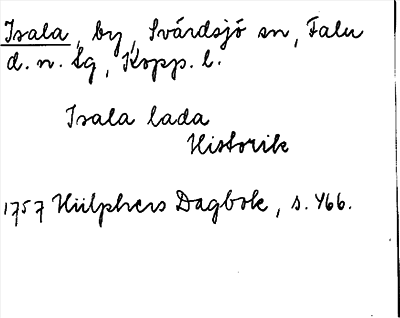 Isala, by, Svärdsjö sn, Falu
d. n. lg, Kopp. l.
Isala lada
Historik
1757 Hülphers Dagbok, s. 466.